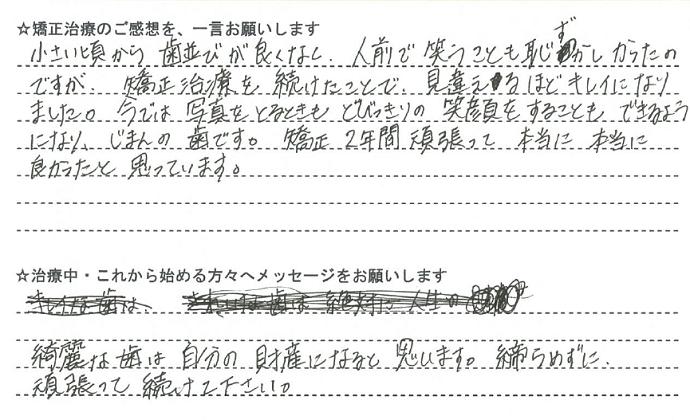 ☆矯正治療のご感想を、一言お願いします
小さい頃から 歯並びが良くなく、人前で 笑うことも恥ずかしかったの
ですが、矯正治療を 続けたことで、見違えるほど キレイになり
ました。今では 写真を とるときも とびっきりの 笑顔を することも できるよう
になり、じまんの 歯です。矯正 2年間 頑張って 本当に 本当に
良かったと 思っています。
☆治療中・これから始める方々へメッセージをお願いします
キレイな歯は、きれいな歯は 絶対に 人生の
綺麗な 歯は 自分の 財産になると 思います。締らめずに、
頑張って 続けて下さい。